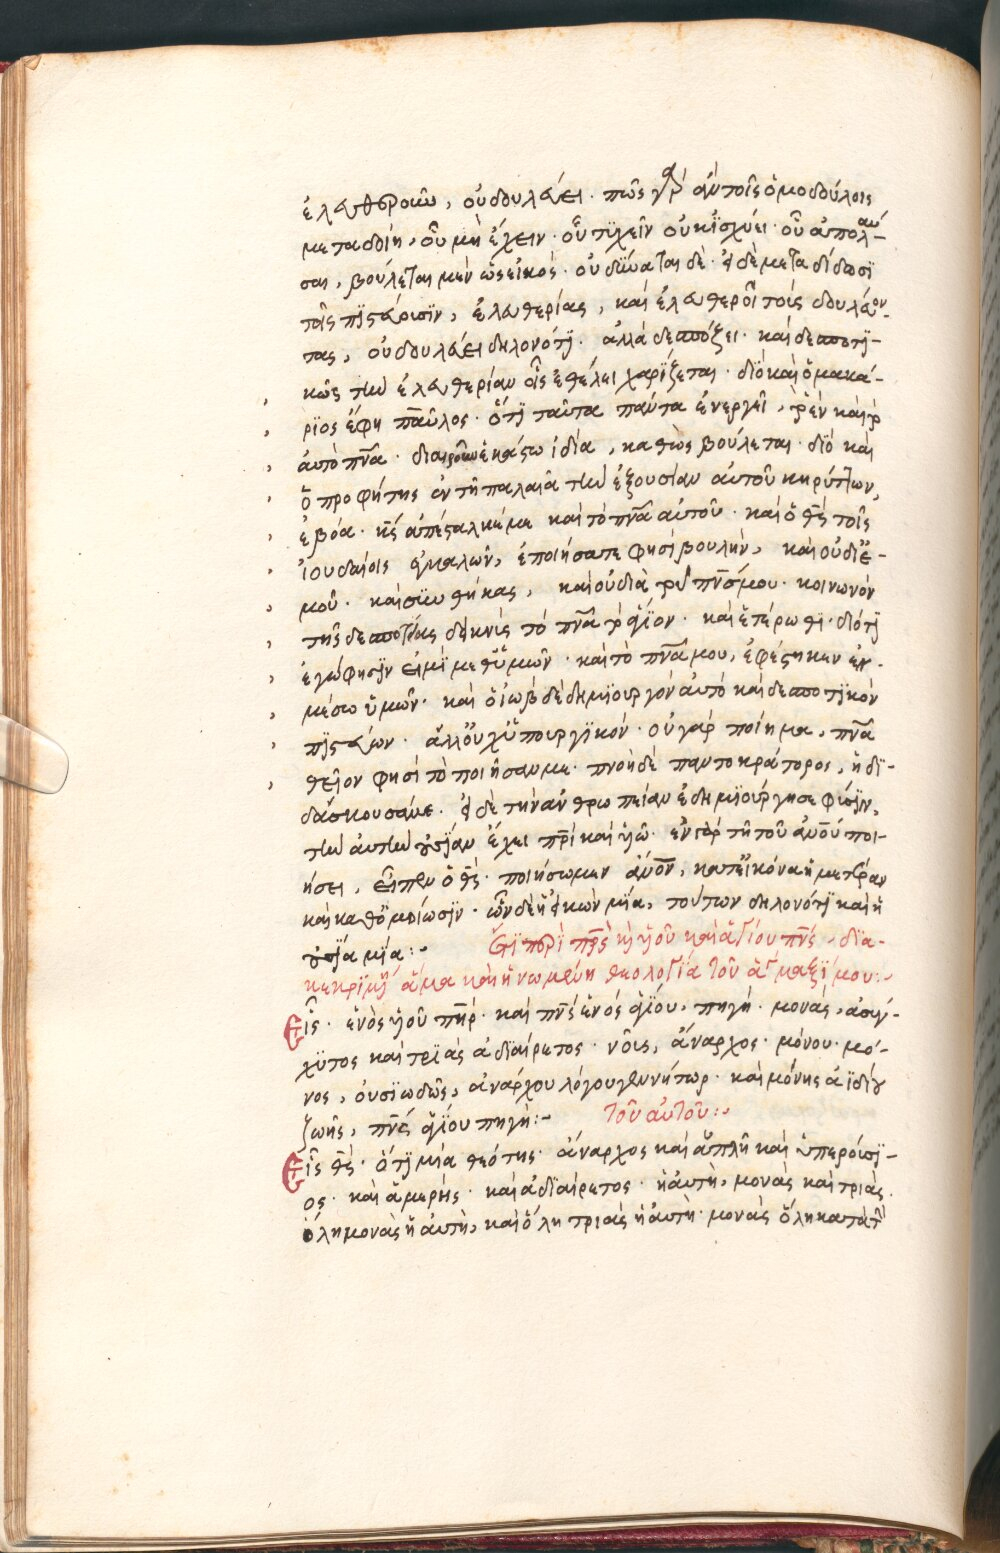 ἐλευθεροῦν, οὐ δουλεύει · πῶς γὰρ ἂν τοῖς ὁμοδούλοις
μεταδοίη, οὗ μὴ ἔχειν · οὗ τυχεῖν οὐκ ἰσχύει · οὗ ἀπολαῦ-
σαι, βούλεται μὲν ὡς εἰκὸς · οὐ δύναται δὲ · ὁ δὲ μεταδίδωσι
τοῖς πιστεύουσιν, ἐλευθερίας, καὶ ἐλευθεροῖ τοὺς δουλεύον-
τας, οὐ δουλεύει δηλονότι · ἀλλὰ δεσπόζει · καὶ δεσποτι-
κῶς τὴν ἐλευθερίαν οἷς ἐθέλει χαρίζεται · διὸ καὶ ὁ μακά-
ριος ἔφη παῦλος · ὅτι ταῦτα πάντα ἐνεργεῖ, τὸ ἓν καὶ τὸ
αὐτὸ πνα · διαιροῦν ἑκάστω ἰδία, καθὼς βούλεται · διὸ καὶ
ὁ προφήτης ἐν τῆ παλαιᾶ τὴν ἐξουσίαν αὐτοῦ κηρύττων,
ἐβόα · κς ἀπέσταλκέ με καὶ τὸ πνα αὐτοῦ · καὶ ὁ θς τοῖς
ἰουδαίοις ἐγκαλῶν, ἐποιήσατε φησὶ βουλὴν, καὶ οὐ δι ἐ-
μοῦ · καὶ συνθήκας, καὶ οὐ διὰ τοῦ πνς μου · κοινωνὸν
τῆς δεσποτείας δεικνὺς τὸ πνα τὸ ἅγιον · καὶ ἑτέρωθι · διότι
ἐγώ φησιν εἰμὶ μεθ ὑμῶν · καὶ τὸ πνα μου, ἐφέστηκεν ἐν
μέσω ὑμῶν · καὶ ὁ ἰὼβ δὲ δημιουργὸν αὐτὸ καὶ δεσποτικὸν
πιστεύων · ἀλλ οὐχ ὑπουργικόν · οὐ γάρ ποίημα, πνα
θεῖον φησὶ τὸ ποιῆσαν με · πνοὴ δὲ παντοκράτορος, ἡ δι-
δάσκουσά με · ὁ δὲ τὴν ἀνθρωπείαν ἐδημιούργησε φύσιν,
τὴν αὐτὴν οὐσίαν ἔχει πρὶ καὶ υἱῶ · ἐν γὰρ τῆ τοῦ ἀνου ποι-
ήσει, εἶπεν ὁ θς · ποιήσωμεν ἀνον, κατ εἰκόνα ἡμετέραν
καὶ καθ ὁμοίωσιν · ὧν δὲ ἡ εἰκὼν μία, τούτων δηλονότι καὶ ἡ
οὐσία μία :-
Ὅτι περὶ πρς κ υἱοῦ καὶ ἁγίου πνς, δια-
κεκριμένη ἅμα καὶ ἡνωμένη θεολογία τοῦ ἁγ μαξίμου :-
Εἷς · ἑνὸς υἱοῦ πηρ · καὶ πνς ἑνός ἁγίου, πηγή · μονὰς, ἀσύγ-
χυτος καὶ τριὰς ἀδιαίρετος · νοῦς, ἄναρχος · μόνου · μό-
νος, οὐσιωδῶς, ἀνάρχου λόγου γεννήτωρ · καὶ μόνης ἀϊδίου
ζωῆς, πνς ἁγίου πηγή :- τοῦ αὐτοῦ :-
Εἷς θς · ὅτι μία θεότης · ἄναρχος καὶ ἁπλῆ καὶ ὑπερούσι-
ος · καὶ ἀμερὴς · καὶ ἀδιαίρετος · ἡ αὐτὴ, μονὰς καὶ τριὰς
ὅλη μονὰς ἡ αὐτὴ, καὶ ὅλη τριὰς ἡ αὐτὴ · μονὰς ὅλη κατὰ τὴν